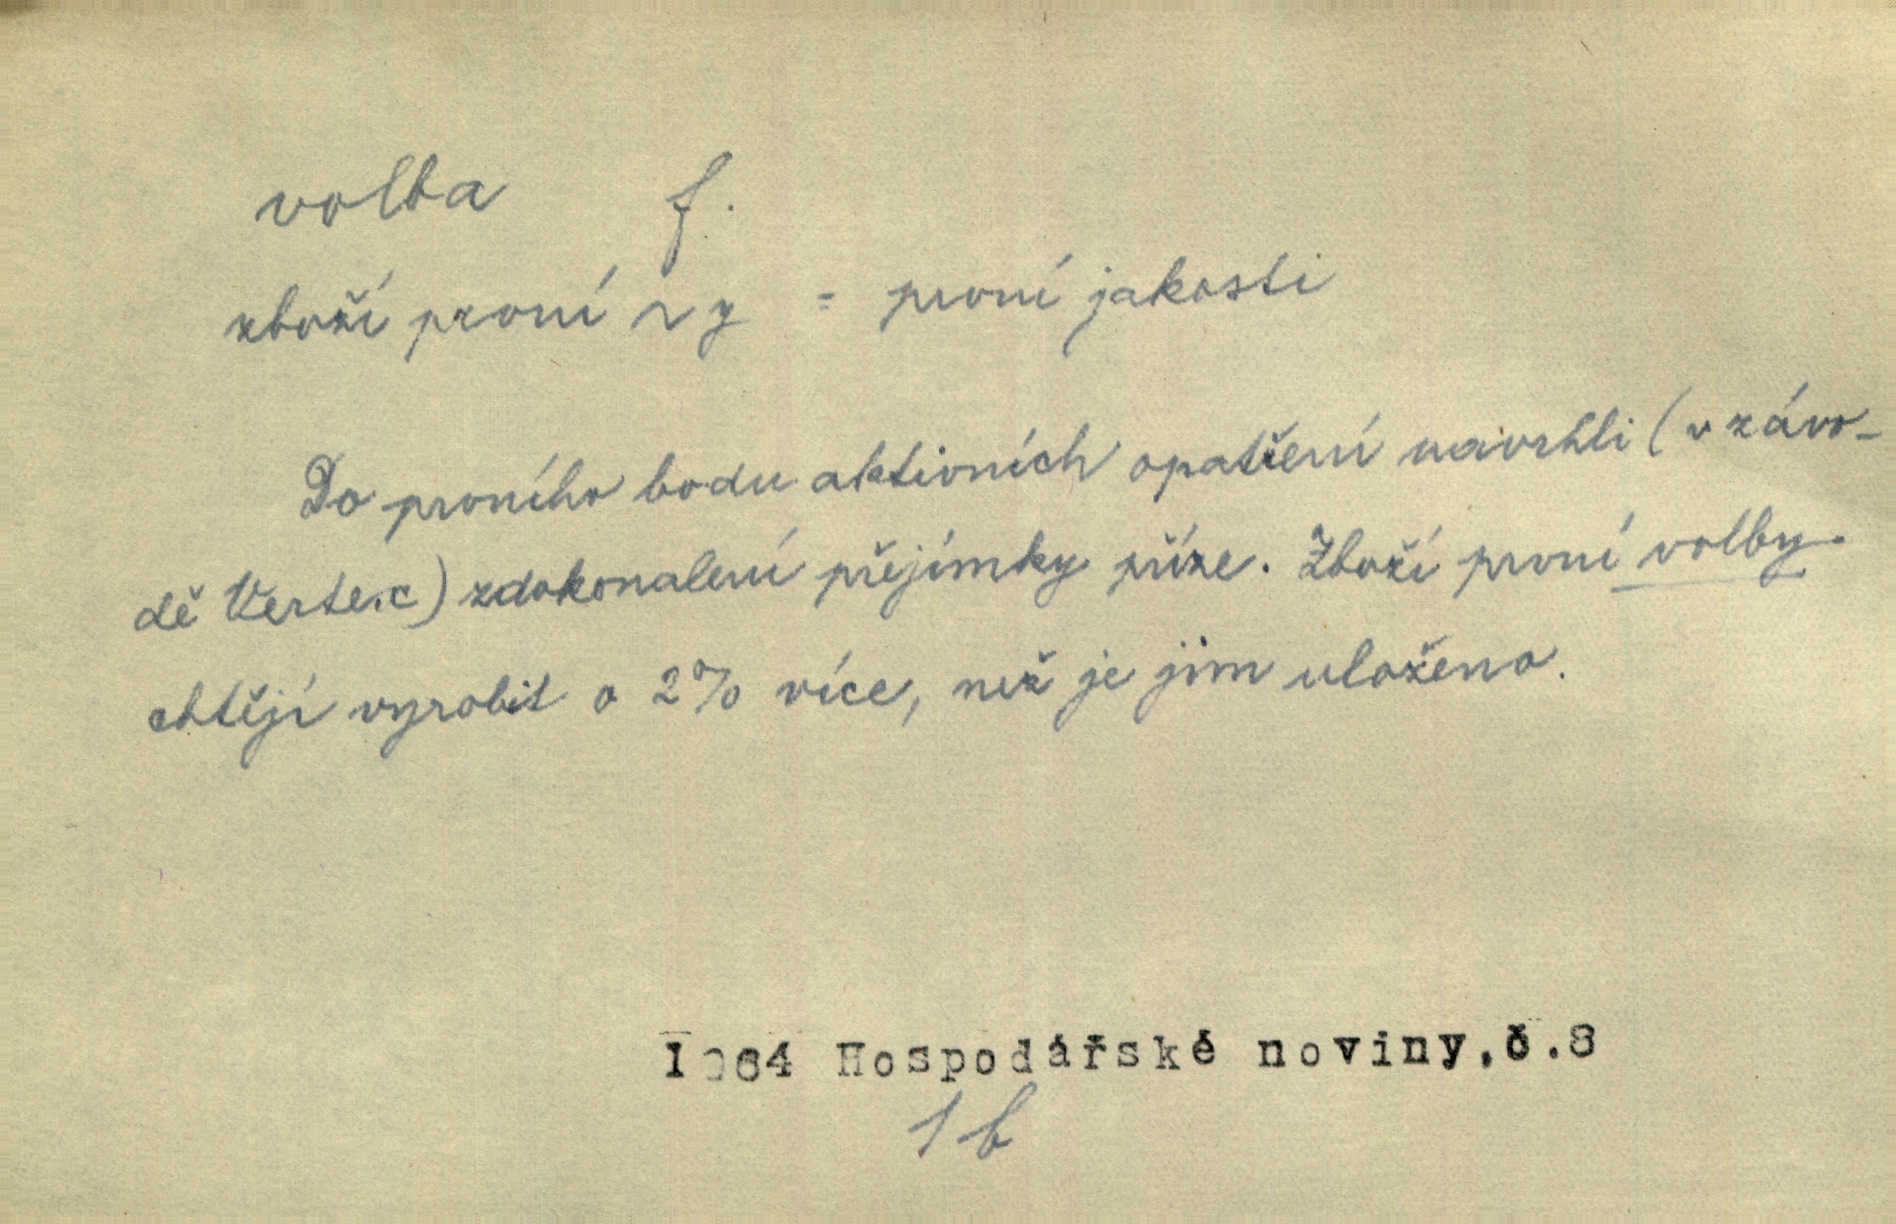 volba f.
zboží první ~ y = první jakosti
Do prvního bodu aktivních opatření navrhli (v závo-
dě Vertex) zdokonalení přejímky příze. Zboží první volby
chtějí vyrobit o 2% více, než je jim uloženo.
1964 Hospodářské noviny, č.8
1b